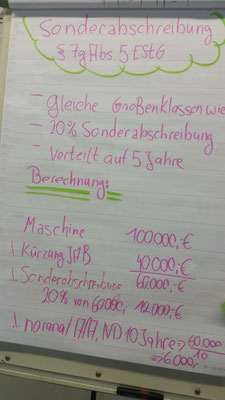 Sonderabschreibung
§ 7g Abs. 5 EStG
- gleiche Größenklassen wie
- 20% Sonderabschreibung
- Verteilt auf 5 Jahre
Berechnung:
Maschine 100000,-€
./. Kürzung IAB 40000,-€
./. Sonderabschreibung 60000,-€
20% von 60000, 12.000,-€
./. normal AfA, ND 10 Jahre => 60.000
10
=> 6.000,-